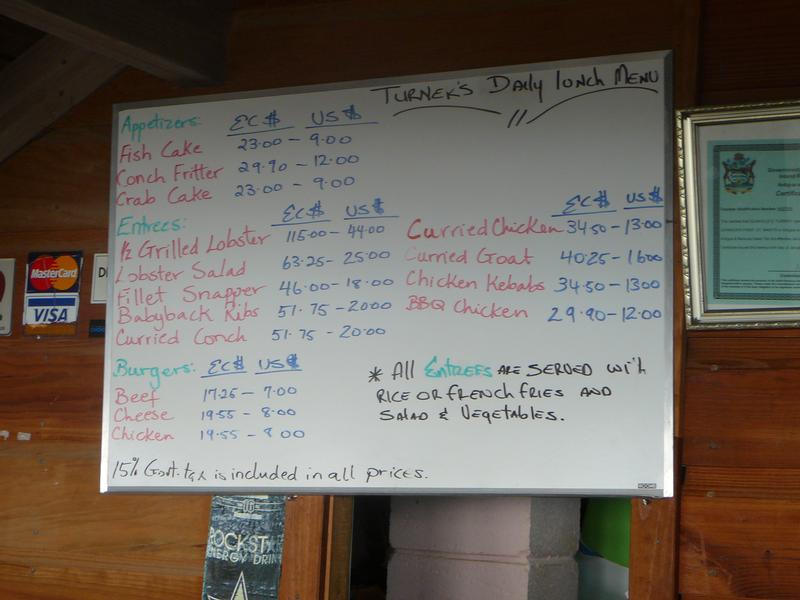 TURNER'S Daily lunch MENU
Appetizers: EC$ US$
Fish Cake 23.00 - 9.00
Conch Fritter 29.90 - 12.00
Crab Cake 23.00 - 9.00
Entrees: EC$ US$
1/2 Grilled Lobster 115.00 - 44.00
Lobster Salad 63.25 - 25.00
Fillet Snapper 46.00 - 18.00
Babyback Ribs 51.75 - 2000
Curried Conch 51.75 - 20.00
EC$ US$
Curried Chicken 34.50 - 13.00
Curried Goat 40.25 - 1600
Chicken Kebabs 34.50 - 1300
BBQ Chicken 29.90 - 12.00
Burgers: EC$ US$
Beef 17.25 - 7.00
Cheese 19.55 - 8.00
Chicken 19.55 - 8 00
* All ENTREES ARE SERVED with
RICE OR FRENCH FRIES AND
SALAD & VEGETABLES.
15% Govt. tax is included in all prices.
MasterCard
VISA
ROCKSTA
ENERGY DRIN